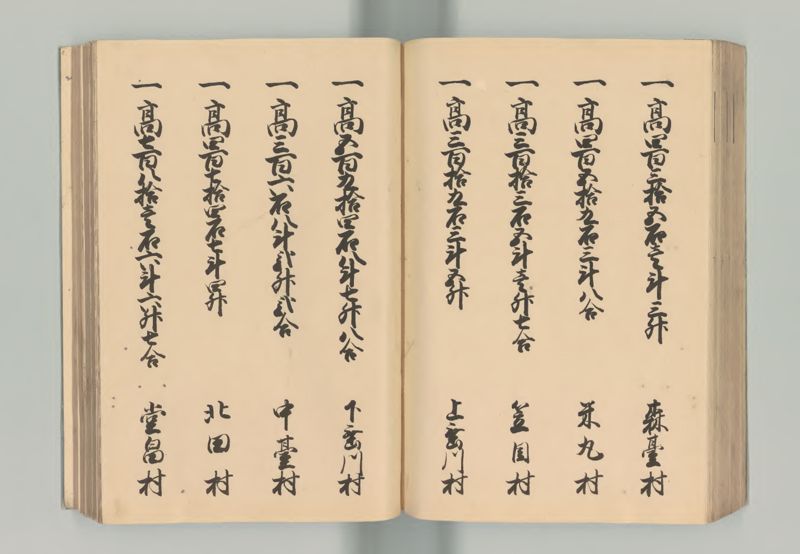 一高四百三拾五石壱斗三升 森臺村
一高四百五拾九石三斗八合 米丸村
一高三百拾三石五斗壱升七合 笠目村
一高三百拾九石三斗五升 上岩川村
一高五百九拾四石八斗七升八合 下岩川村
一高三百六石八斗弐升弐合 中臺村
一高四百七拾四石七斗四升 北田村
一高七百八拾壱石六斗六升七合 堂畠村